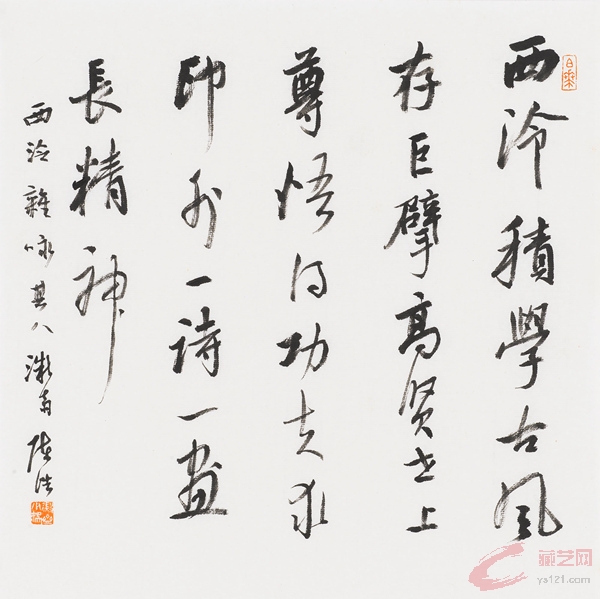 西泠積學古風
存巨擘高贤世上
尊悟得功夫求
印外一詩一畫
長精神
西泠雜咏其八
藏艺网
ys121.com